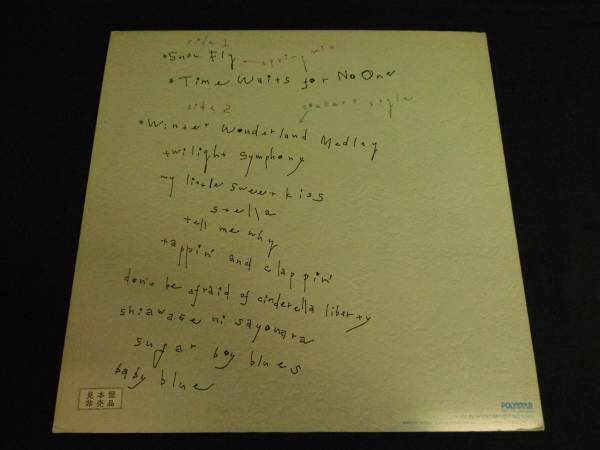 side 1
•Snow Fly —spring mix
•Time Waits for No One
side 2
concert style
•Winter Wonderland Medley
twilight symphony
my little sweet kiss
stella
tell me why
tappin' and clappin'
don't be afraid of cinderella liberty
shiawase ni sayonara
sugar boy blues
baby blue
見本盤
非売品
POLYSTAR